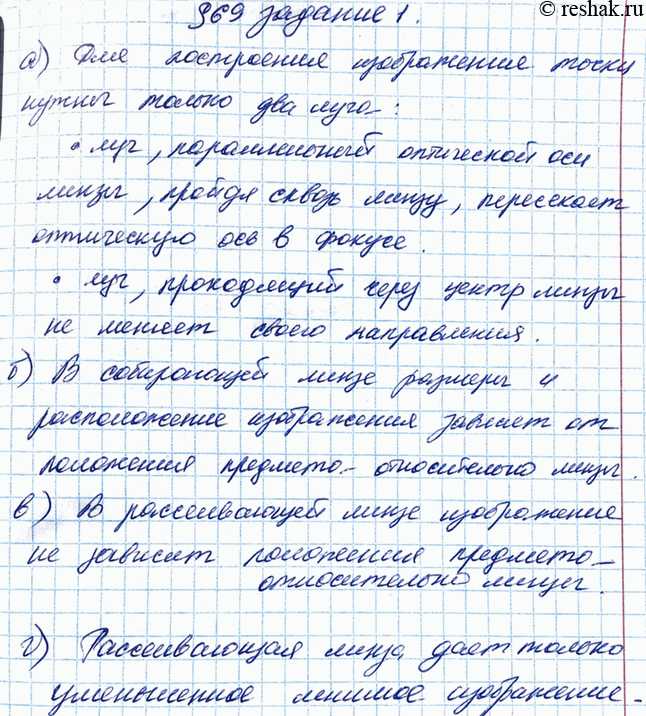 © reshak.ru
§69 задание 1.
а) Для построения изображение точки
нужны только два луча:
• луч, параллельный оптической оси
линзы, пройдя сквозь линзу, пересекает
оптическую ось в фокусе.
• луч, проходящий через центр линзы
не меняет своего направления.
б) В собирающей линзе размеры и
расположение изображения зависит от
положения предмета относительно линзы.
в) В рассеивающей линзе изображение
не зависит положения предмета
относительно линзы.
г) Рассеивающая линза дает только
уменьшенное мнимое изображение.